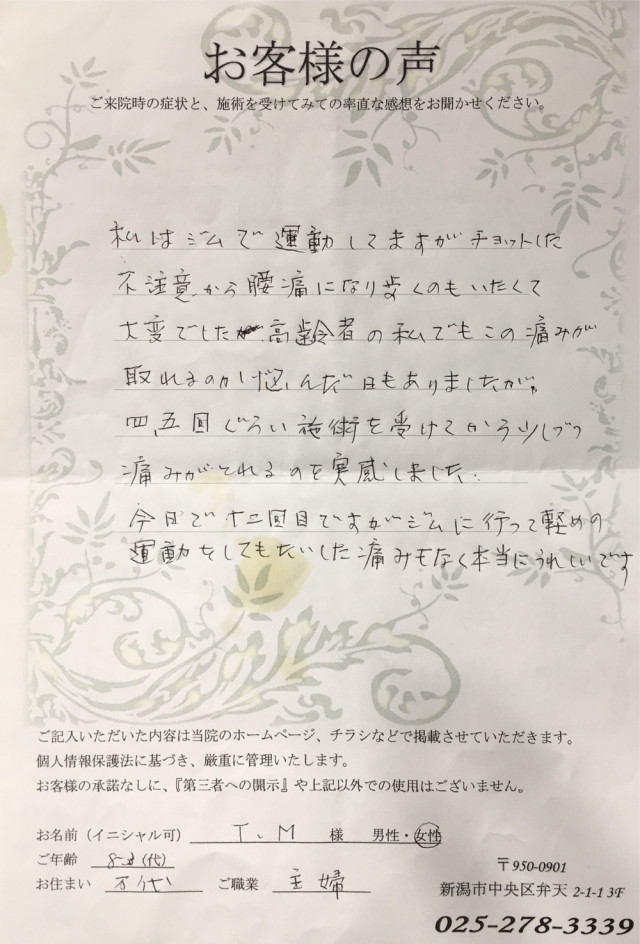 お客様の声
ご来院時の症状と、施術を受けてみての率直な感想をお聞かせください。
私はジムで運動してますがチョットした
不注意から腰痛になり歩くのもいたくて
大変でした高齢者の私でもこの痛みが
取れるのか悩んだ日もありましたが、
四、五回ぐらい施術を受けてから少しづつ
痛みがとれるのを実感しました.
今日で十二回目ですがジムに行って軽めの
運動をしてもたいした痛みもなく本当にうれしいです
ご記入いただいた内容は当院のホームページ、チラシなどで掲載させていただきます。
個人情報保護法に基づき、厳重に管理いたします。
お客様の承諾なしに、『第三者への開示』や上記以外での使用はございません。
お名前(イニシャル可) T、M 様 男性・女性
ご年齢 (代)
お住まい 万代 ご職業 主婦
〒950-0901
新潟市中央区弁天 2-1-1 3F
025-278-3339